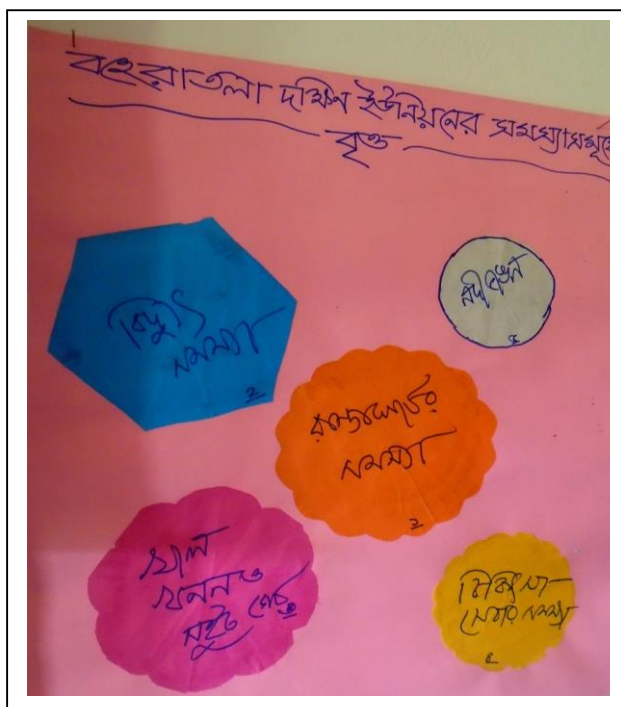 বহেরাতলা দক্ষিন ইউনিয়নের সমস্যাসমূহে
বৃত্ত
বিদ্যুৎ
সমস্যা
২
নদীভাঙন
৫
রাস্তাঘাটের
সমস্যা
১
খাল
খনন ও
সুইচ গেট
৩
চিকিৎসা
সেবার সমস্যা
৪